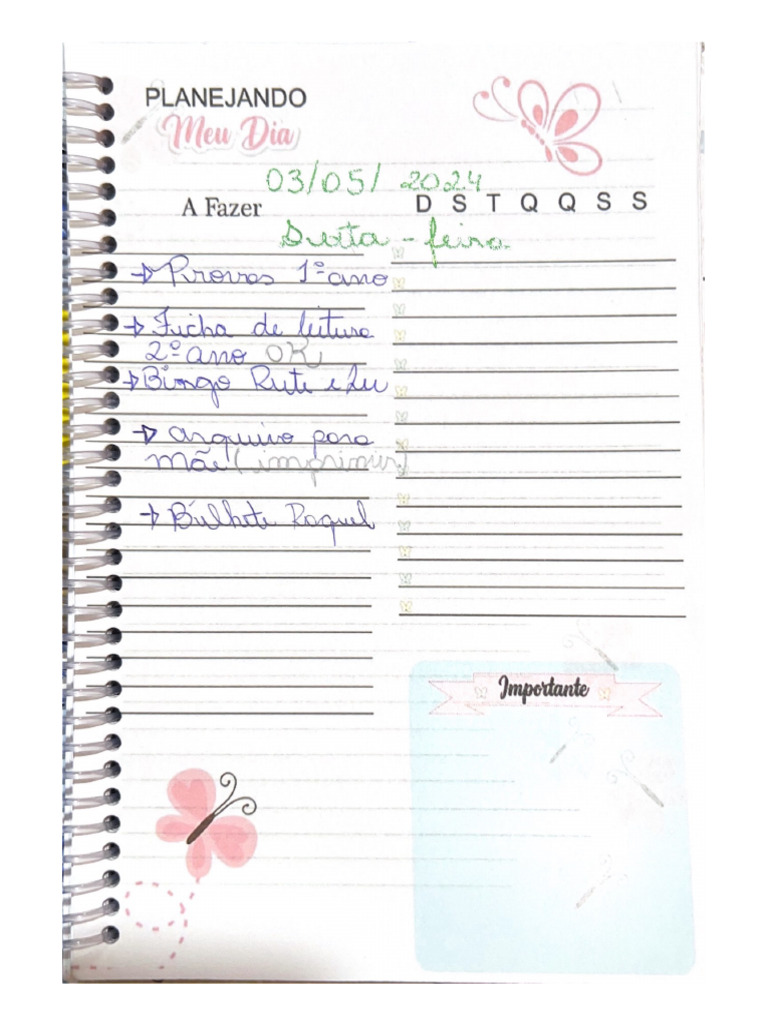 PLANEJANDO
Meu Dia
03/05/2024
A Fazer
D S T Q Q S S
Sexta-feira
→ Provas 1º ano
→ Ficha de leitura
2º ano OK
→ Bingo Rute e Lu
→ arquivo para
mãe (imprimir)
→ Bilhete Raquel
Importante